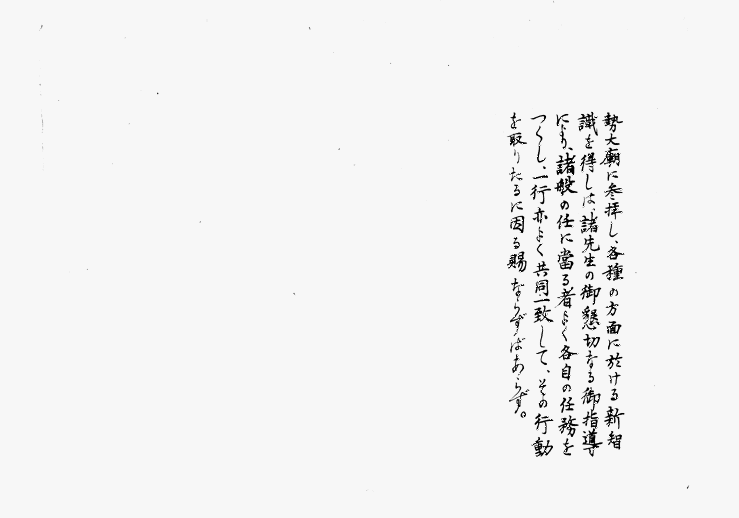 勢大廟に参拝し、各種の方面に於ける新智
識を得しは、諸先生の御懇切なる御指導
により、諸般の任に當る者よく各自の任務を
つくし、一行亦よく共同一致して、その行動
を取りたるに因る賜ならずばあらず。